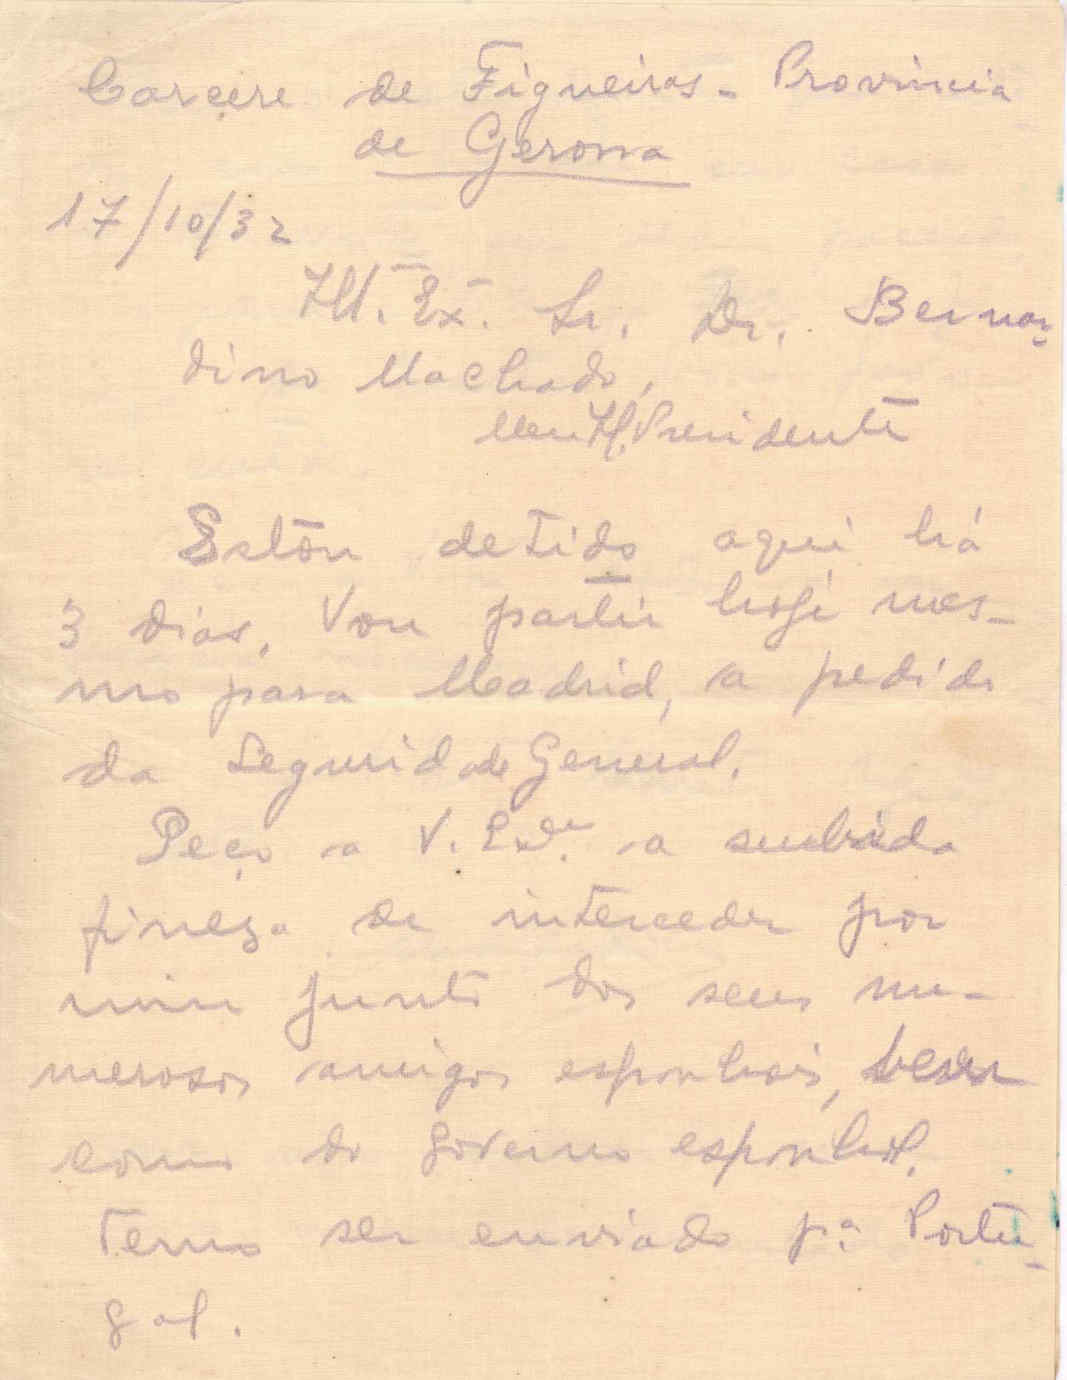 Carcere de Figueiras - Provincia
de Gerona
17/10/32
Ill. Ex. Sr. Dr. Bernar-
dino Machado,
Meu Il. Presidente
Estou detido aqui há
3 dias. Vou partir hoje mes-
mo para Madrid, a pedido
da Seguridade General.
Peço a V. Exª. a subida
fineza de interceder por
mim junto dos seus nu-
merosos amigos espanhois, bem
como do governo espanhol.
Temo ser enviado pª Portu-
gal.